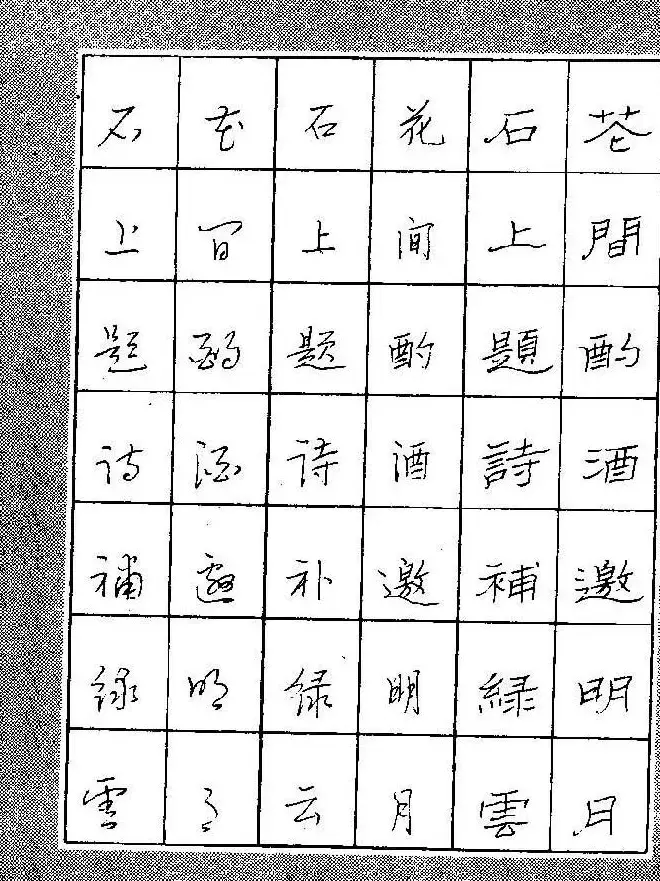 花間酌酒邀明月
石上題詩補緑雲
花间酌酒邀明月
石上题诗补绿云
花间酌酒邀明月
石上题诗補绿雲